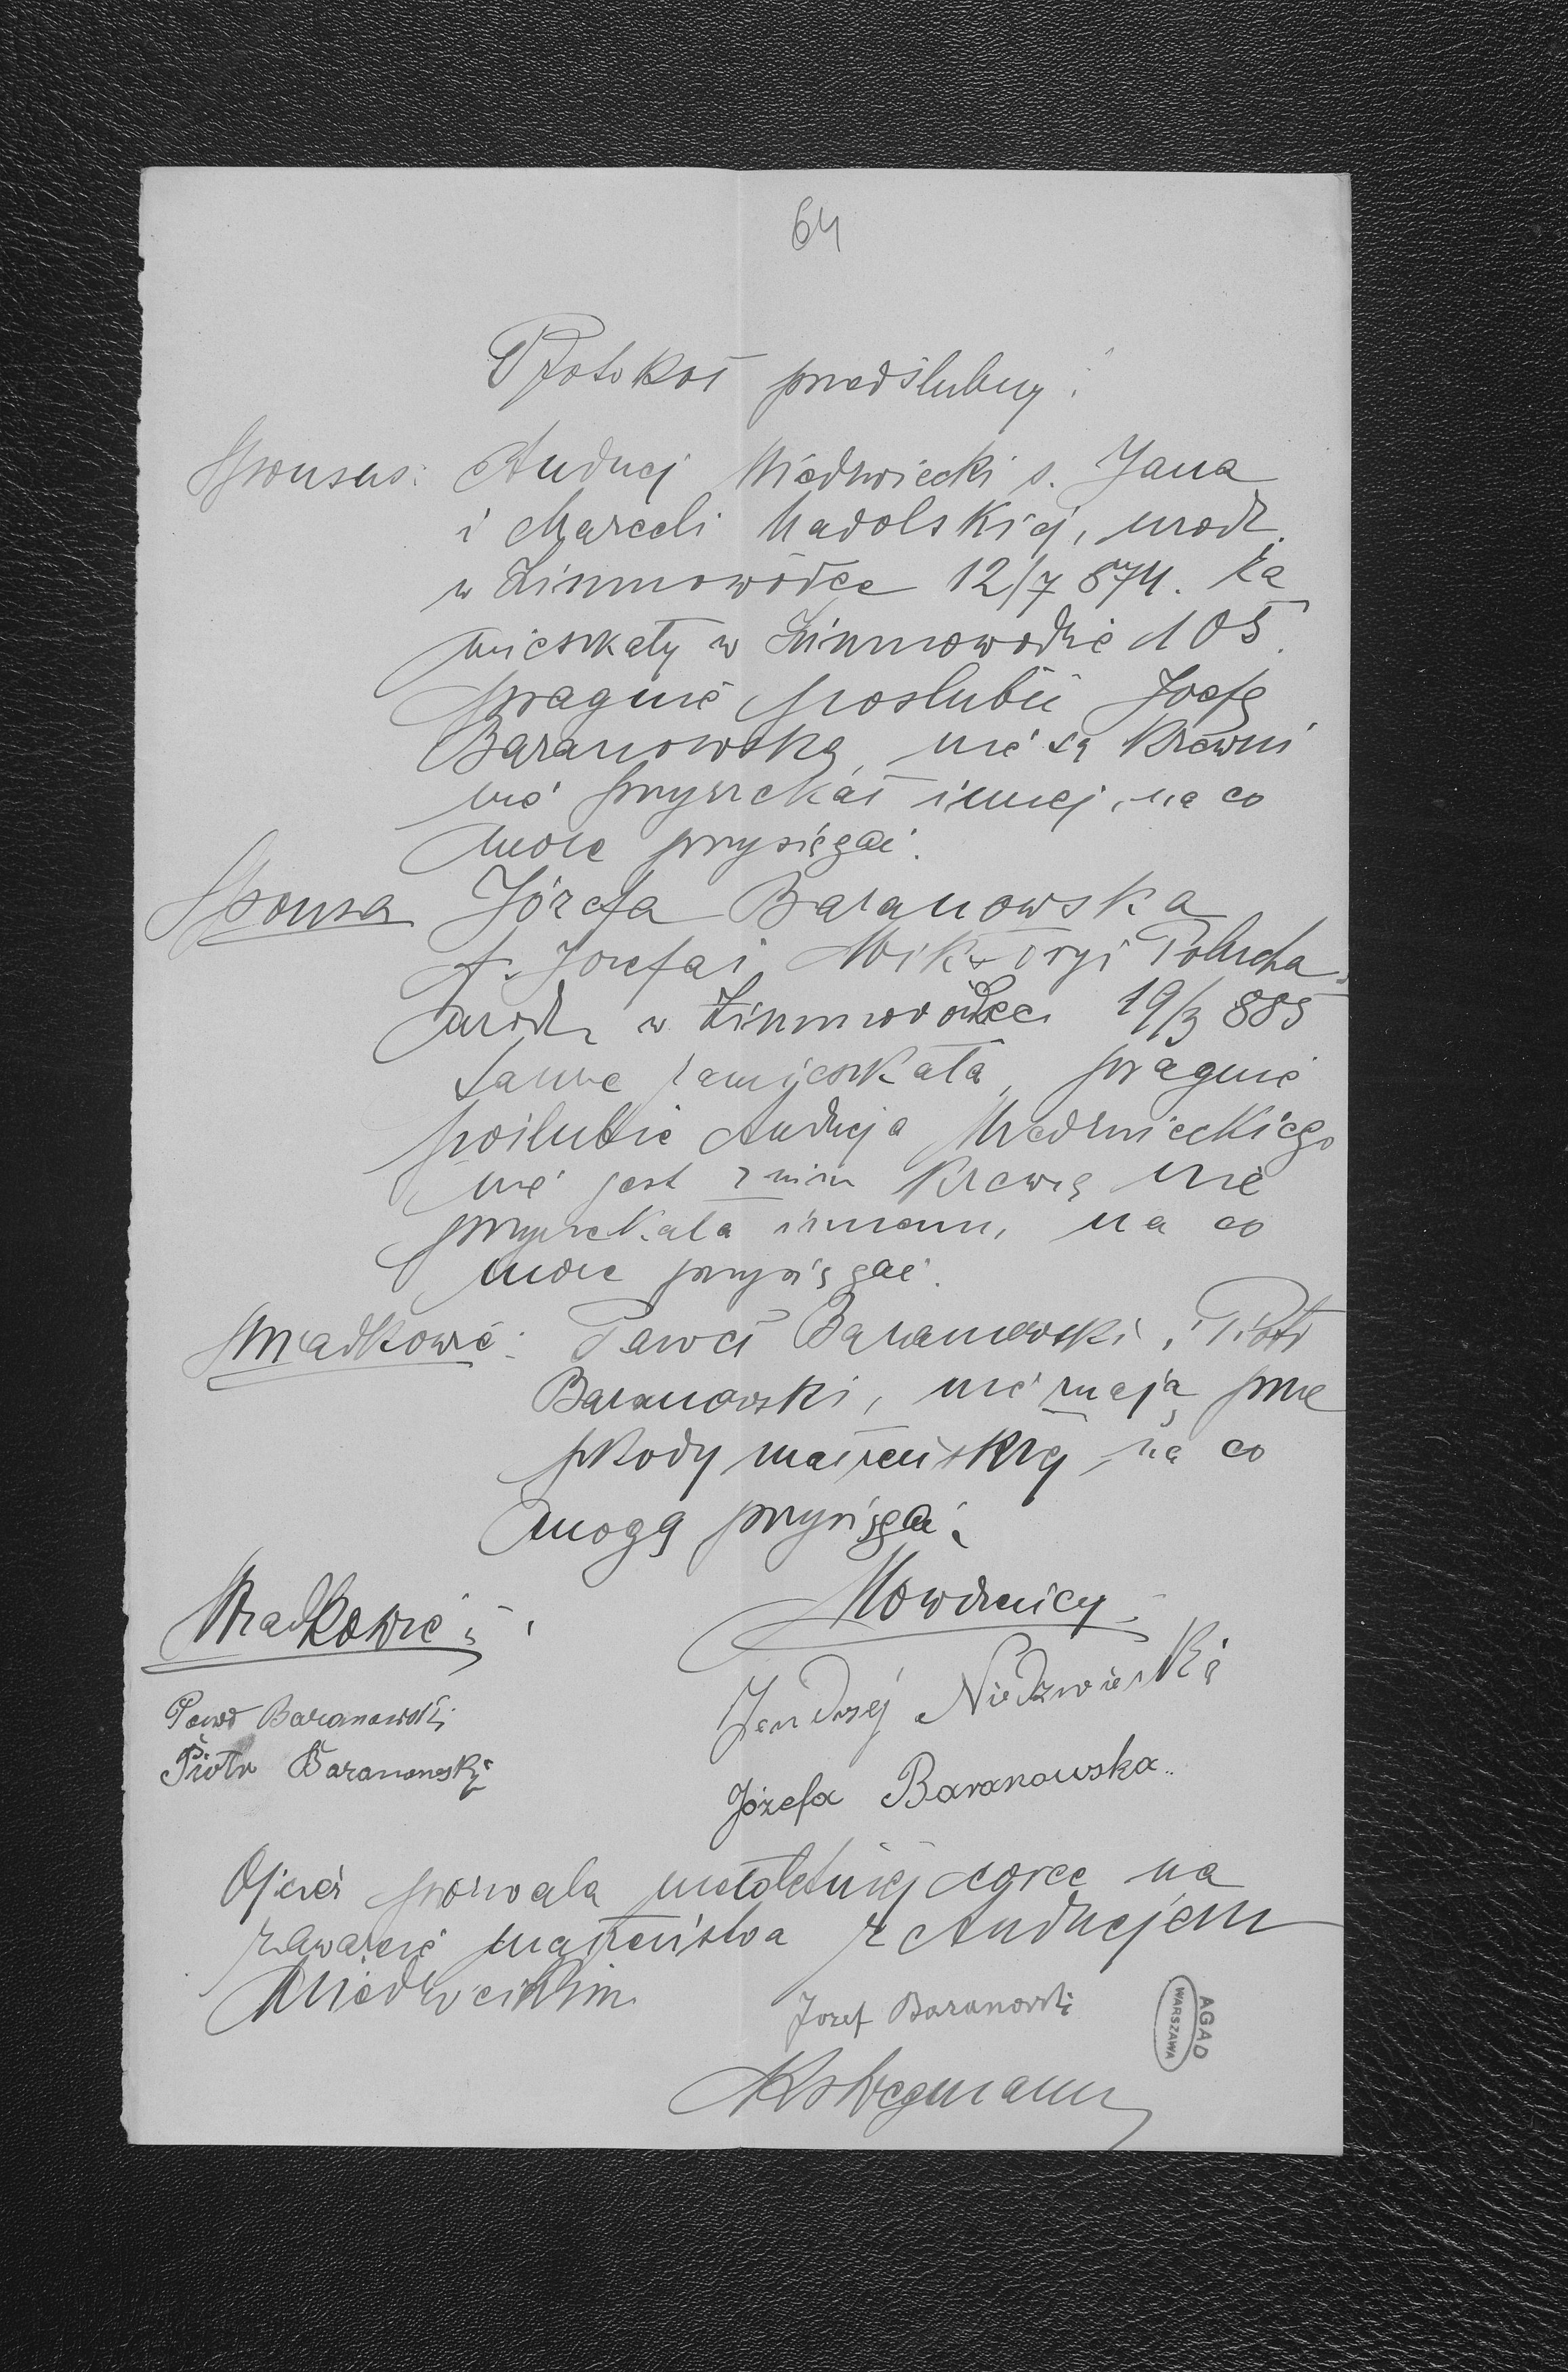 64
Protokół przedślubny:
Sponsus: Andrzej Niedzwiecki s. Jana
i Marceli Nadolskiej, urodz.
w Zimnowódce 12/7 874. za
mieszkały w Zimnowodzie 105.
pragnie poslubić Józefę
Baranowską, nie są krewni
nie przyrzekał innej, na co
może przysięgać.
Sponsa Józefa Baranowska
c. Jozefa i Wiktoryi
urodz w Zimnowódce 19/3 885
zamieszkała, pragnie
poślubić Andrzeja Niedzwieckiego
nie jest z nim krewną nie
przyrzekała innemu, na co
może przysięgać.
Swiadkowie: Paweł Baranowski i Piotr
Baranowski, nie znają prze
szkody małżeńskiej, na co
mogą przysięgać.
Swiadkowie: Nowożeńcy:
Paweł Baranowski Jendrzéj Niedzwiecki
Piotr Baranowski Józefa Baranowska..
Ojciec pozwala małoletniej córce na
zawarcie małżeństwa z Andrzejem
Niedzwieckim
Jozef Baranowski
Ks Wegmann
AGAD
WARSZAWA